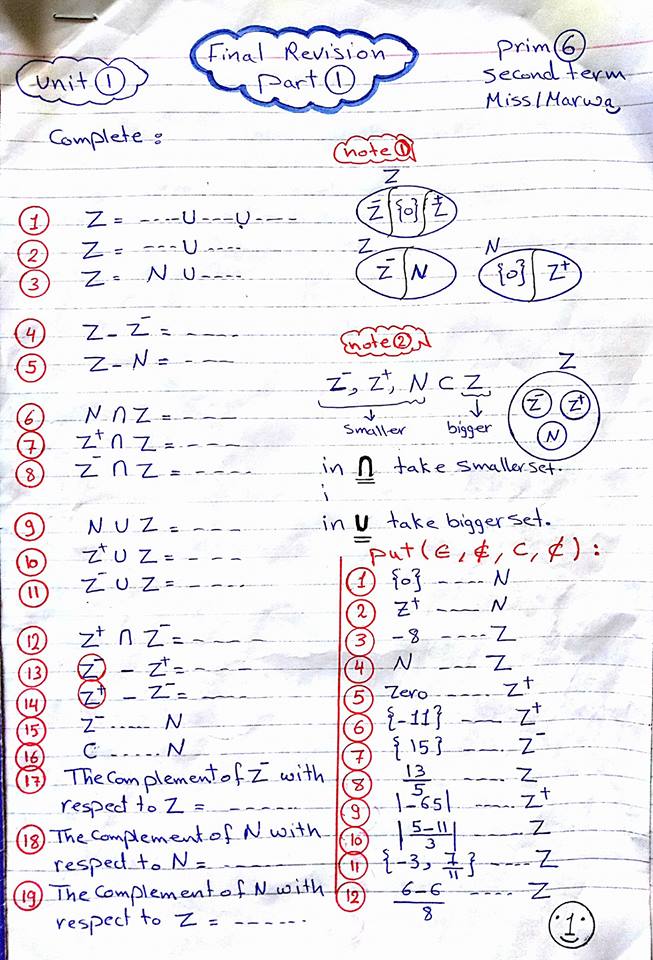 Final Revision
Part ①
Unit ①
Prim ⑥
Second term
Miss/Marwa
Complete :
note ①
Z
Z⁻ {0} Z⁺
① Z = ----U---U----
② Z = ---U----
③ Z = N U----
Z
Z⁻ N
N
{0} Z⁺
④ Z - Z⁻ = ----
⑤ Z - N = ----
⑥ N ∩ Z = ----
⑦ Z⁺ ∩ Z = ----
⑧ Z⁻ ∩ Z = ----
⑨ N U Z = ---
⑩ Z⁺ U Z = ---
⑪ Z⁻ U Z = ----
⑫ Z⁺ ∩ Z⁻ = ----
⑬ Z⁻ - Z⁺ = ----
⑭ Z⁺ - Z⁻ = ----
⑮ Z⁻ ..... N
⑯ C ..... N
⑰ The complement of Z⁻ with
respect to Z = ------
⑱ The complement of N with
respect to N = -----
⑲ The complement of N with
respect to Z = ------
note ② N
Z⁻, Z⁺, N ⊂ Z
smaller
bigger
Z
Z⁻ Z⁺
N
in ∩ take smaller set.
in U take bigger set.
put (∈, ∉, ⊂, ⊄) :
① {0} ---- N
② Z⁺ ---- N
③ -8 ---- Z
④ N ---- Z
⑤ Zero ---- Z⁺
⑥ {-11} ---- Z⁺
⑦ {15} ---- Z⁻
⑧ 13/5 ---- Z
⑨ |-65| ---- Z⁺
⑩ |5-11/3| ---- Z
⑪ {-3, 7/11} ---- Z
⑫ 6-6/8 ---- Z
1